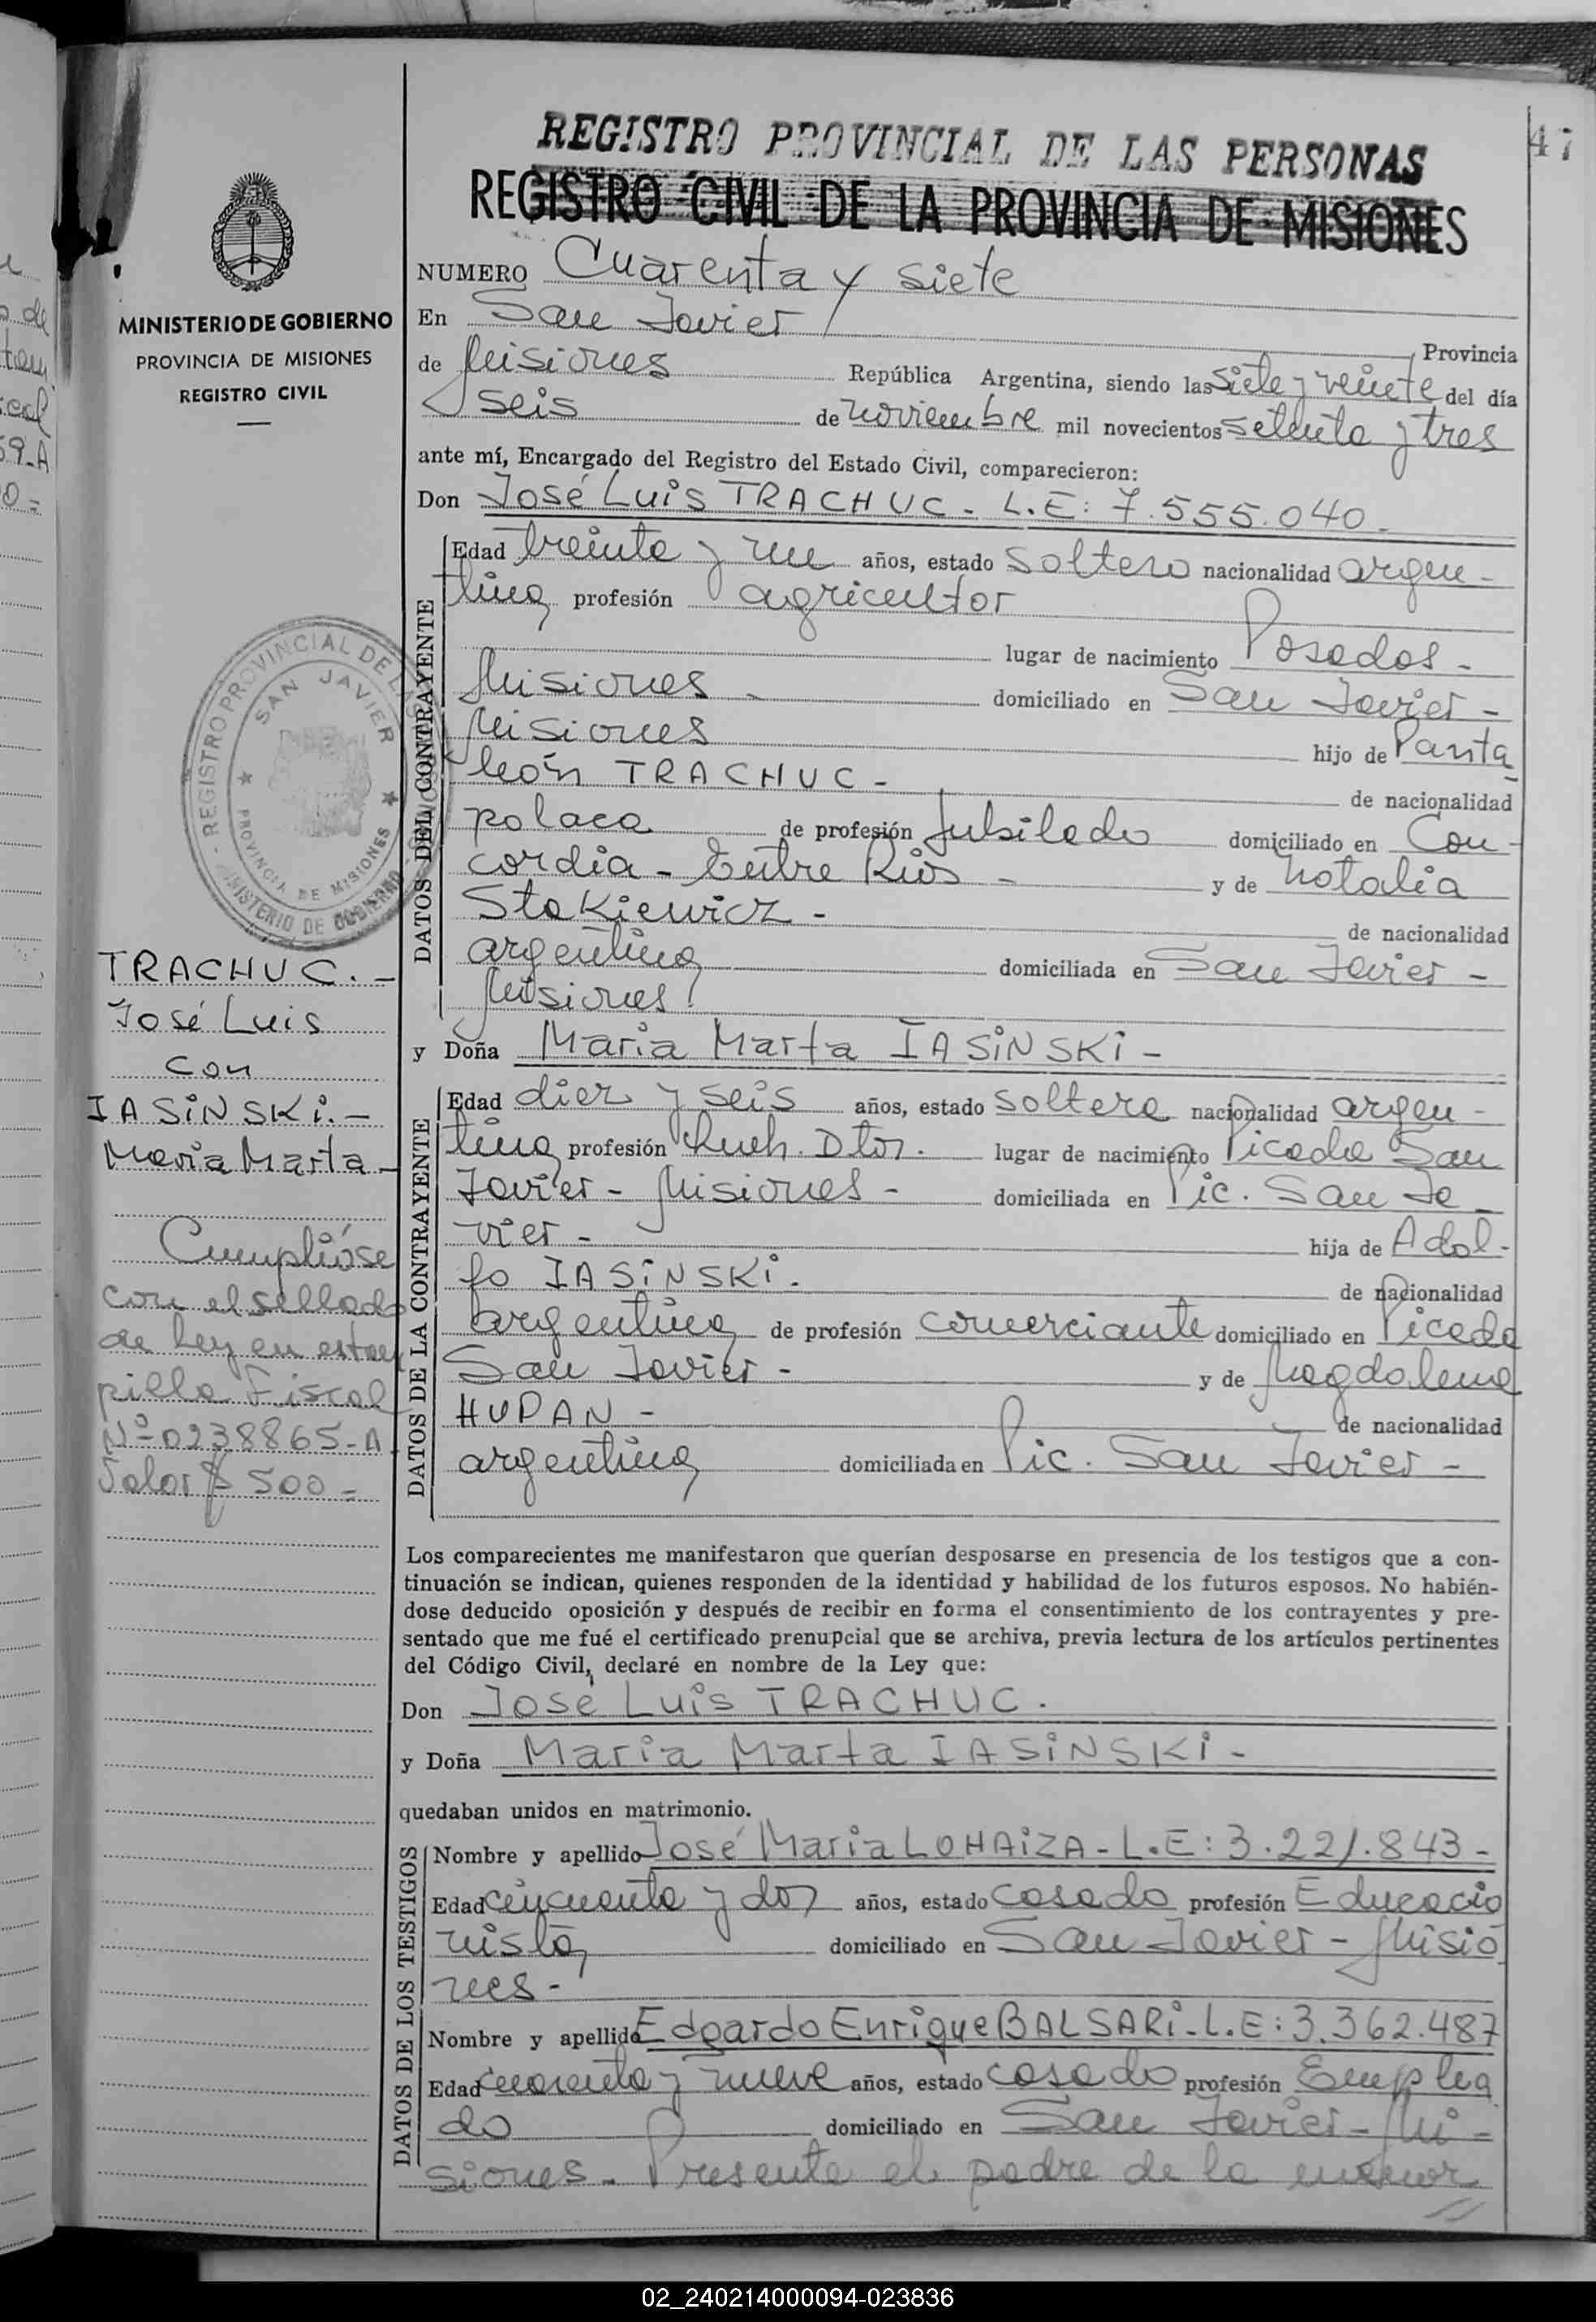 47
REGISTRO PROVINCIAL DE LAS PERSONAS
REGISTRO CIVIL DE LA PROVINCIA DE MISIONES
MINISTERIO DE GOBIERNO
PROVINCIA DE MISIONES
REGISTRO CIVIL
NUMERO Cuarenta y siete
En San Javier Provincia
de Misiones República Argentina, siendo las siete y veinte del día
seis de noviembre mil novecientos setenta y tres
ante mí, Encargado del Registro del Estado Civil, comparecieron:
Don José Luis TRACHUC - L.E: 7.555.040.-
DATOS DEL CONTRAYENTE
Edad treinta y un años, estado soltero nacionalidad argen-
tina profesión agricultor
lugar de nacimiento Posadas -
Misiones - domiciliado en San Javier -
Misiones hijo de Panta
león TRACHUC - de nacionalidad
polaca de profesión Jubilado domiciliado en Con-
cordia - Entre Ríos - y de Natalia
Stakiewicz - de nacionalidad
argentina domiciliada en San Javier -
Misiones
y Doña Maria Marta IASINSKI -
DATOS DE LA CONTRAYENTE
Edad diez y seis años, estado soltera nacionalidad argen-
tina profesión Queh. Dtos. lugar de nacimiento Picada San
Javier - Misiones - domiciliada en Pic. San Ja-
vier - hija de Adol-
fo IASINSKI. de nacionalidad
argentina de profesión comerciante domiciliado en Picada
San Javier - y de Magdalena
HUPAN - de nacionalidad
argentina domiciliada en Pic. San Javier -
Los comparecientes me manifestaron que querían desposarse en presencia de los testigos que a con-
tinuación se indican, quienes responden de la identidad y habilidad de los futuros esposos. No habién-
dose deducido oposición y después de recibir en forma el consentimiento de los contrayentes y pre-
sentado que me fué el certificado prenupcial que se archiva, previa lectura de los artículos pertinentes
del Código Civil, declaré en nombre de la Ley que:
Don José Luis TRACHUC.
y Doña Maria Marta IASINSKI -
quedaban unidos en matrimonio.
DATOS DE LOS TESTIGOS
Nombre y apellido José Maria LOHAIZA - L.E: 3.221.843 -
Edad cincuenta y dos años, estado casado profesión Educacio
nista domiciliado en San Javier - Misio
nes -
Nombre y apellido Edgardo Enrique BALSARI - L.E: 3.362.487
Edad cuarenta y nueve años, estado casado profesión Emplea
do domiciliado en San Javier - Mi-
siones - Presente el padre de la menor
REGISTRO PROVINCIAL DE LAS PERSONAS
SAN JAVIER
PROVINCIA DE MISIONES
MINISTERIO DE GOBIERNO
TRACHUC. -
José Luis
con
IASINSKI. -
Maria Marta -
Cumplióse
con el sellado
de Ley en estam
pilla Fiscal
Nº 0238865-A
Valor $ 500 =
02_240214000094-023836